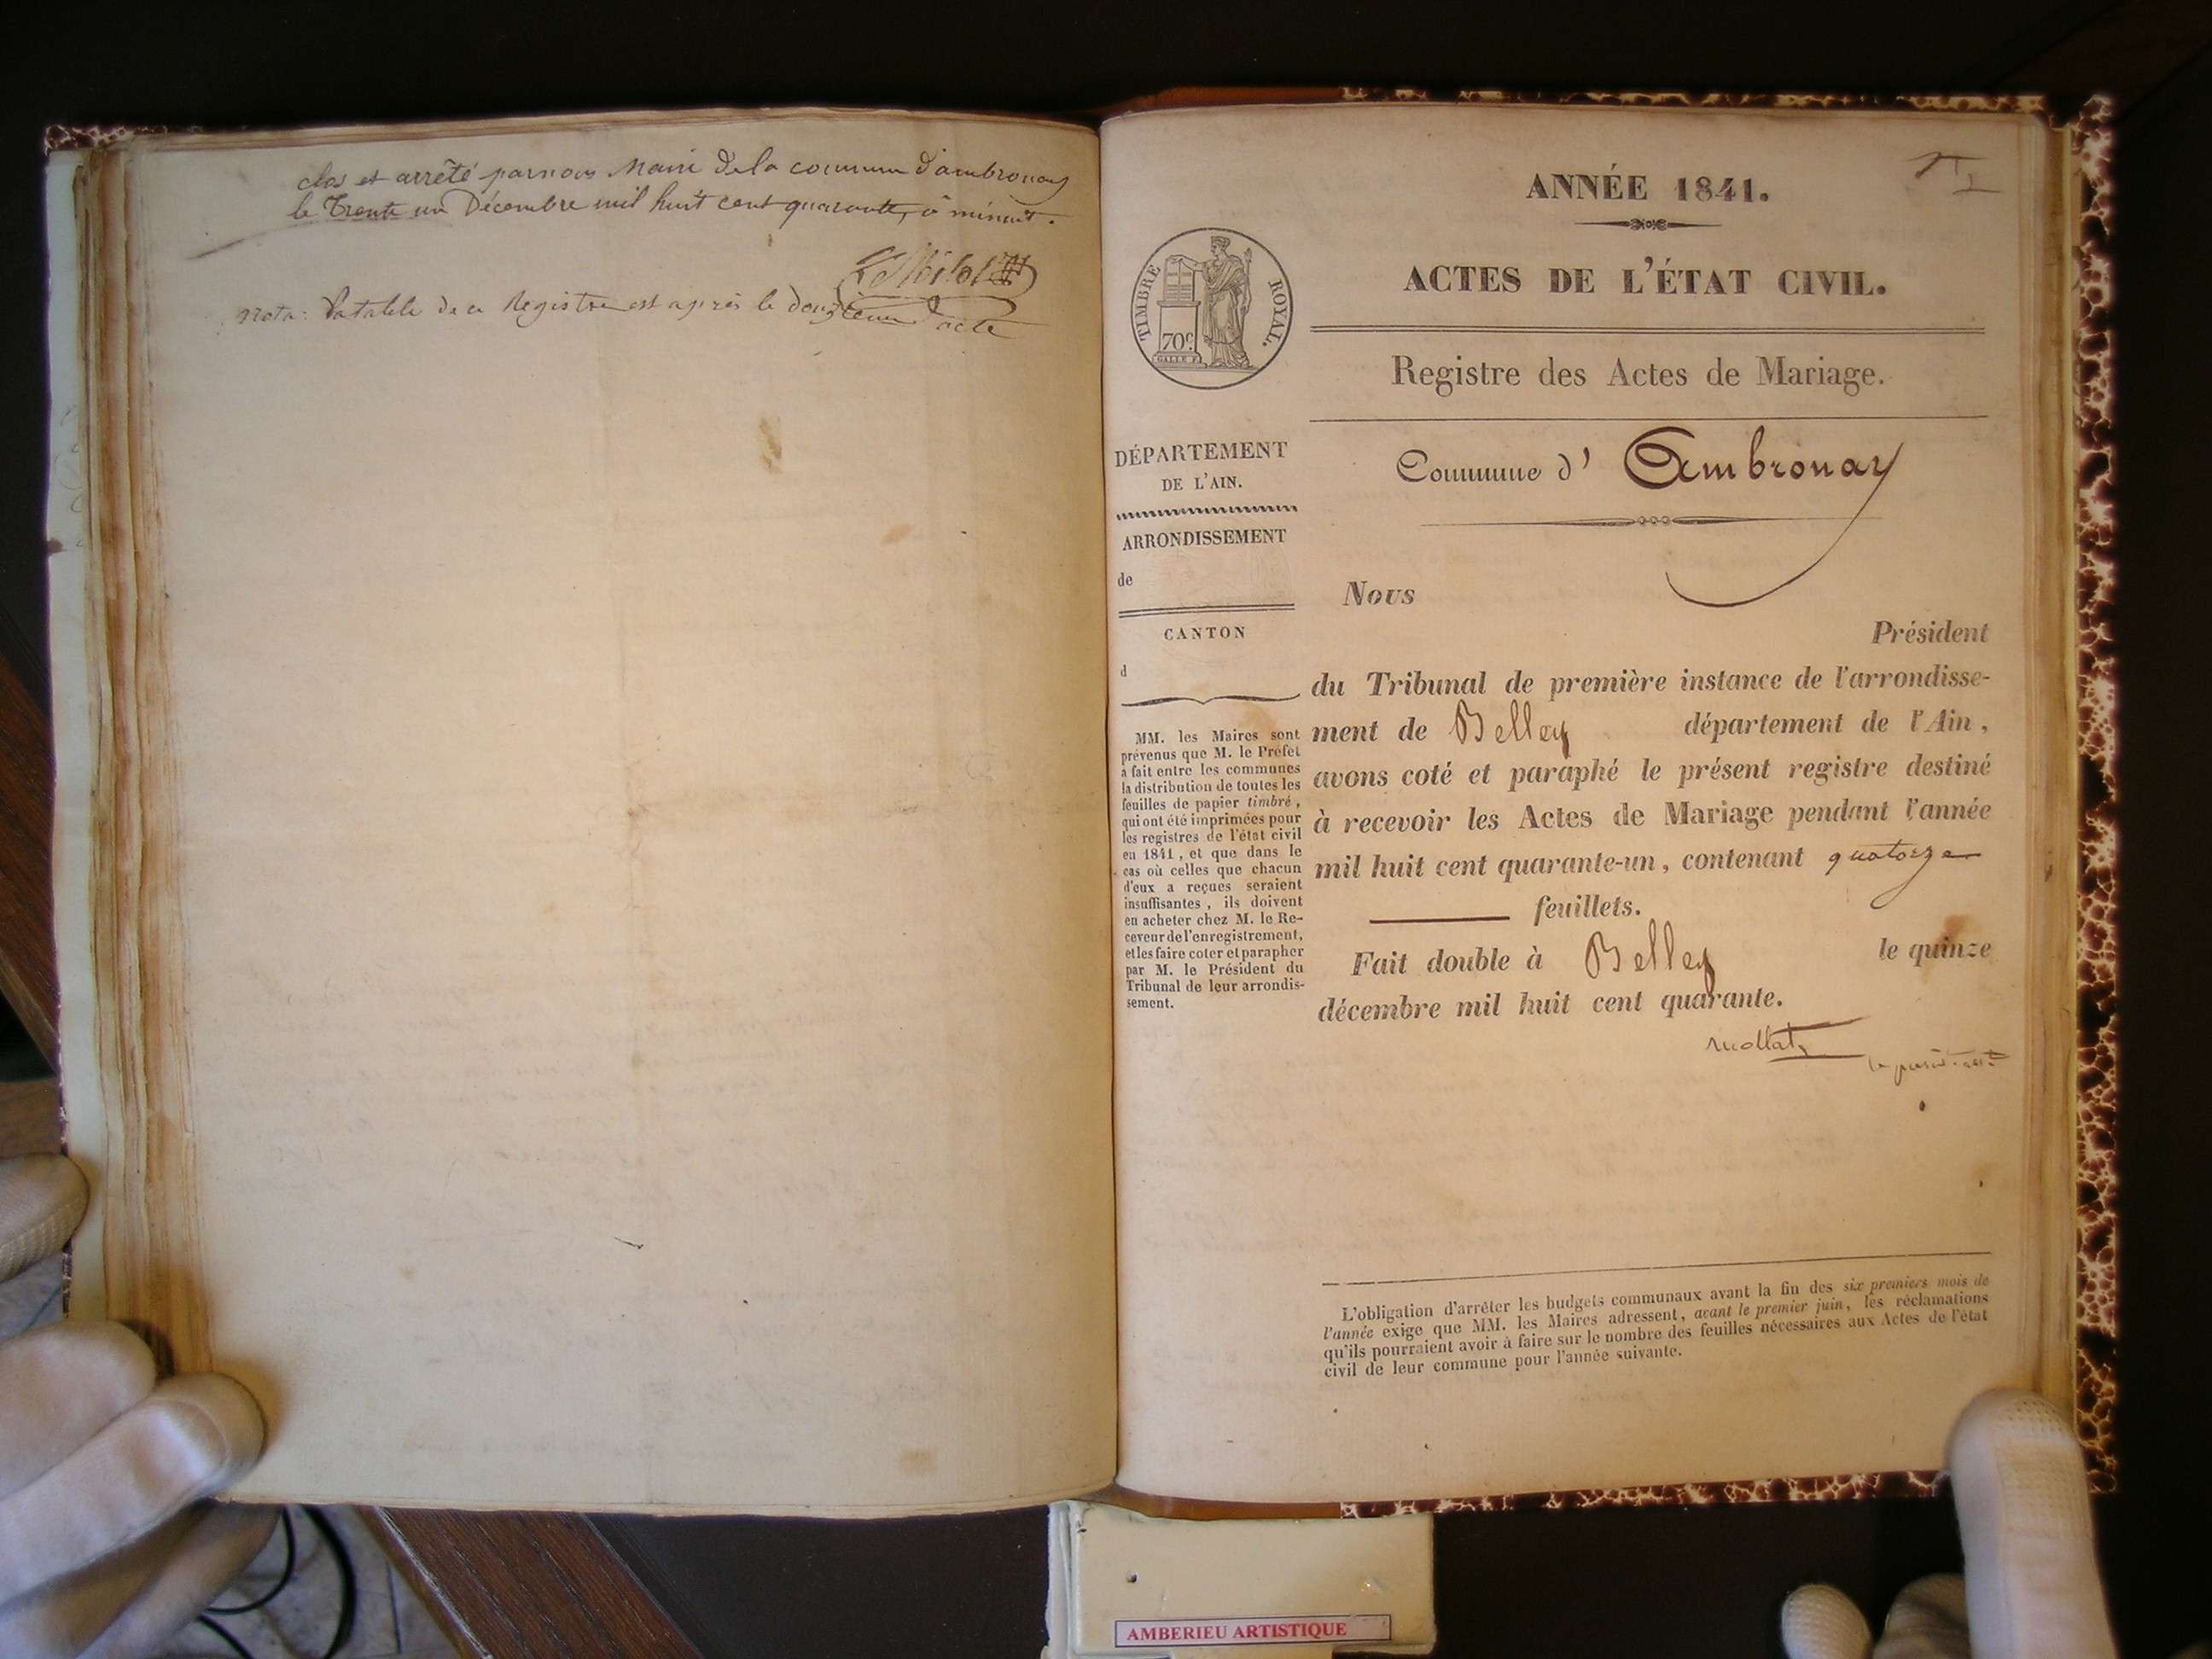 clos et arrêté par nous Maire de la commune d'ambronay
le Trente un Décembre mil huit cent quarante, à minuit.
nota: la table de ce Registre est après le douzième acte
ANNÉE 1841.
ACTES DE L'ÉTAT CIVIL.
TIMBRE ROYAL.
70c
GALLE F.
Registre des Actes de Mariage.
Commune d' Ambronay
DÉPARTEMENT
DE L'AIN.
ARRONDISSEMENT
de
CANTON
d
MM. les Maires sont
prévenus que M. le Préfet
a fait entre les communes
la distribution de toutes les
feuilles de papier timbré,
qui ont été imprimées pour
les registres de l'état civil
en 1841, et que dans le
cas où celles que chacun
d'eux a reçues seraient
insuffisantes, ils doivent
en acheter chez M. le Re-
ceveur de l'enregistrement,
et les faire coter et parapher
par M. le Président du
Tribunal de leur arrondis-
sement.
Nous
Président
du Tribunal de première instance de l'arrondisse-
ment de Belley département de l'Ain,
avons coté et paraphé le présent registre destiné
à recevoir les Actes de Mariage pendant l'année
mil huit cent quarante-un, contenant quatorze
feuillets.
Fait double à Belley le quinze
décembre mil huit cent quarante.
L'obligation d'arrêter les budgets communaux avant la fin des six premiers mois de
l'année exige que MM. les Maires adressent, avant le premier juin, les réclamations
qu'ils pourraient avoir à faire sur le nombre des feuilles nécessaires aux Actes de l'état
civil de leur commune pour l'année suivante.
AMBERIEU ARTISTIQUE